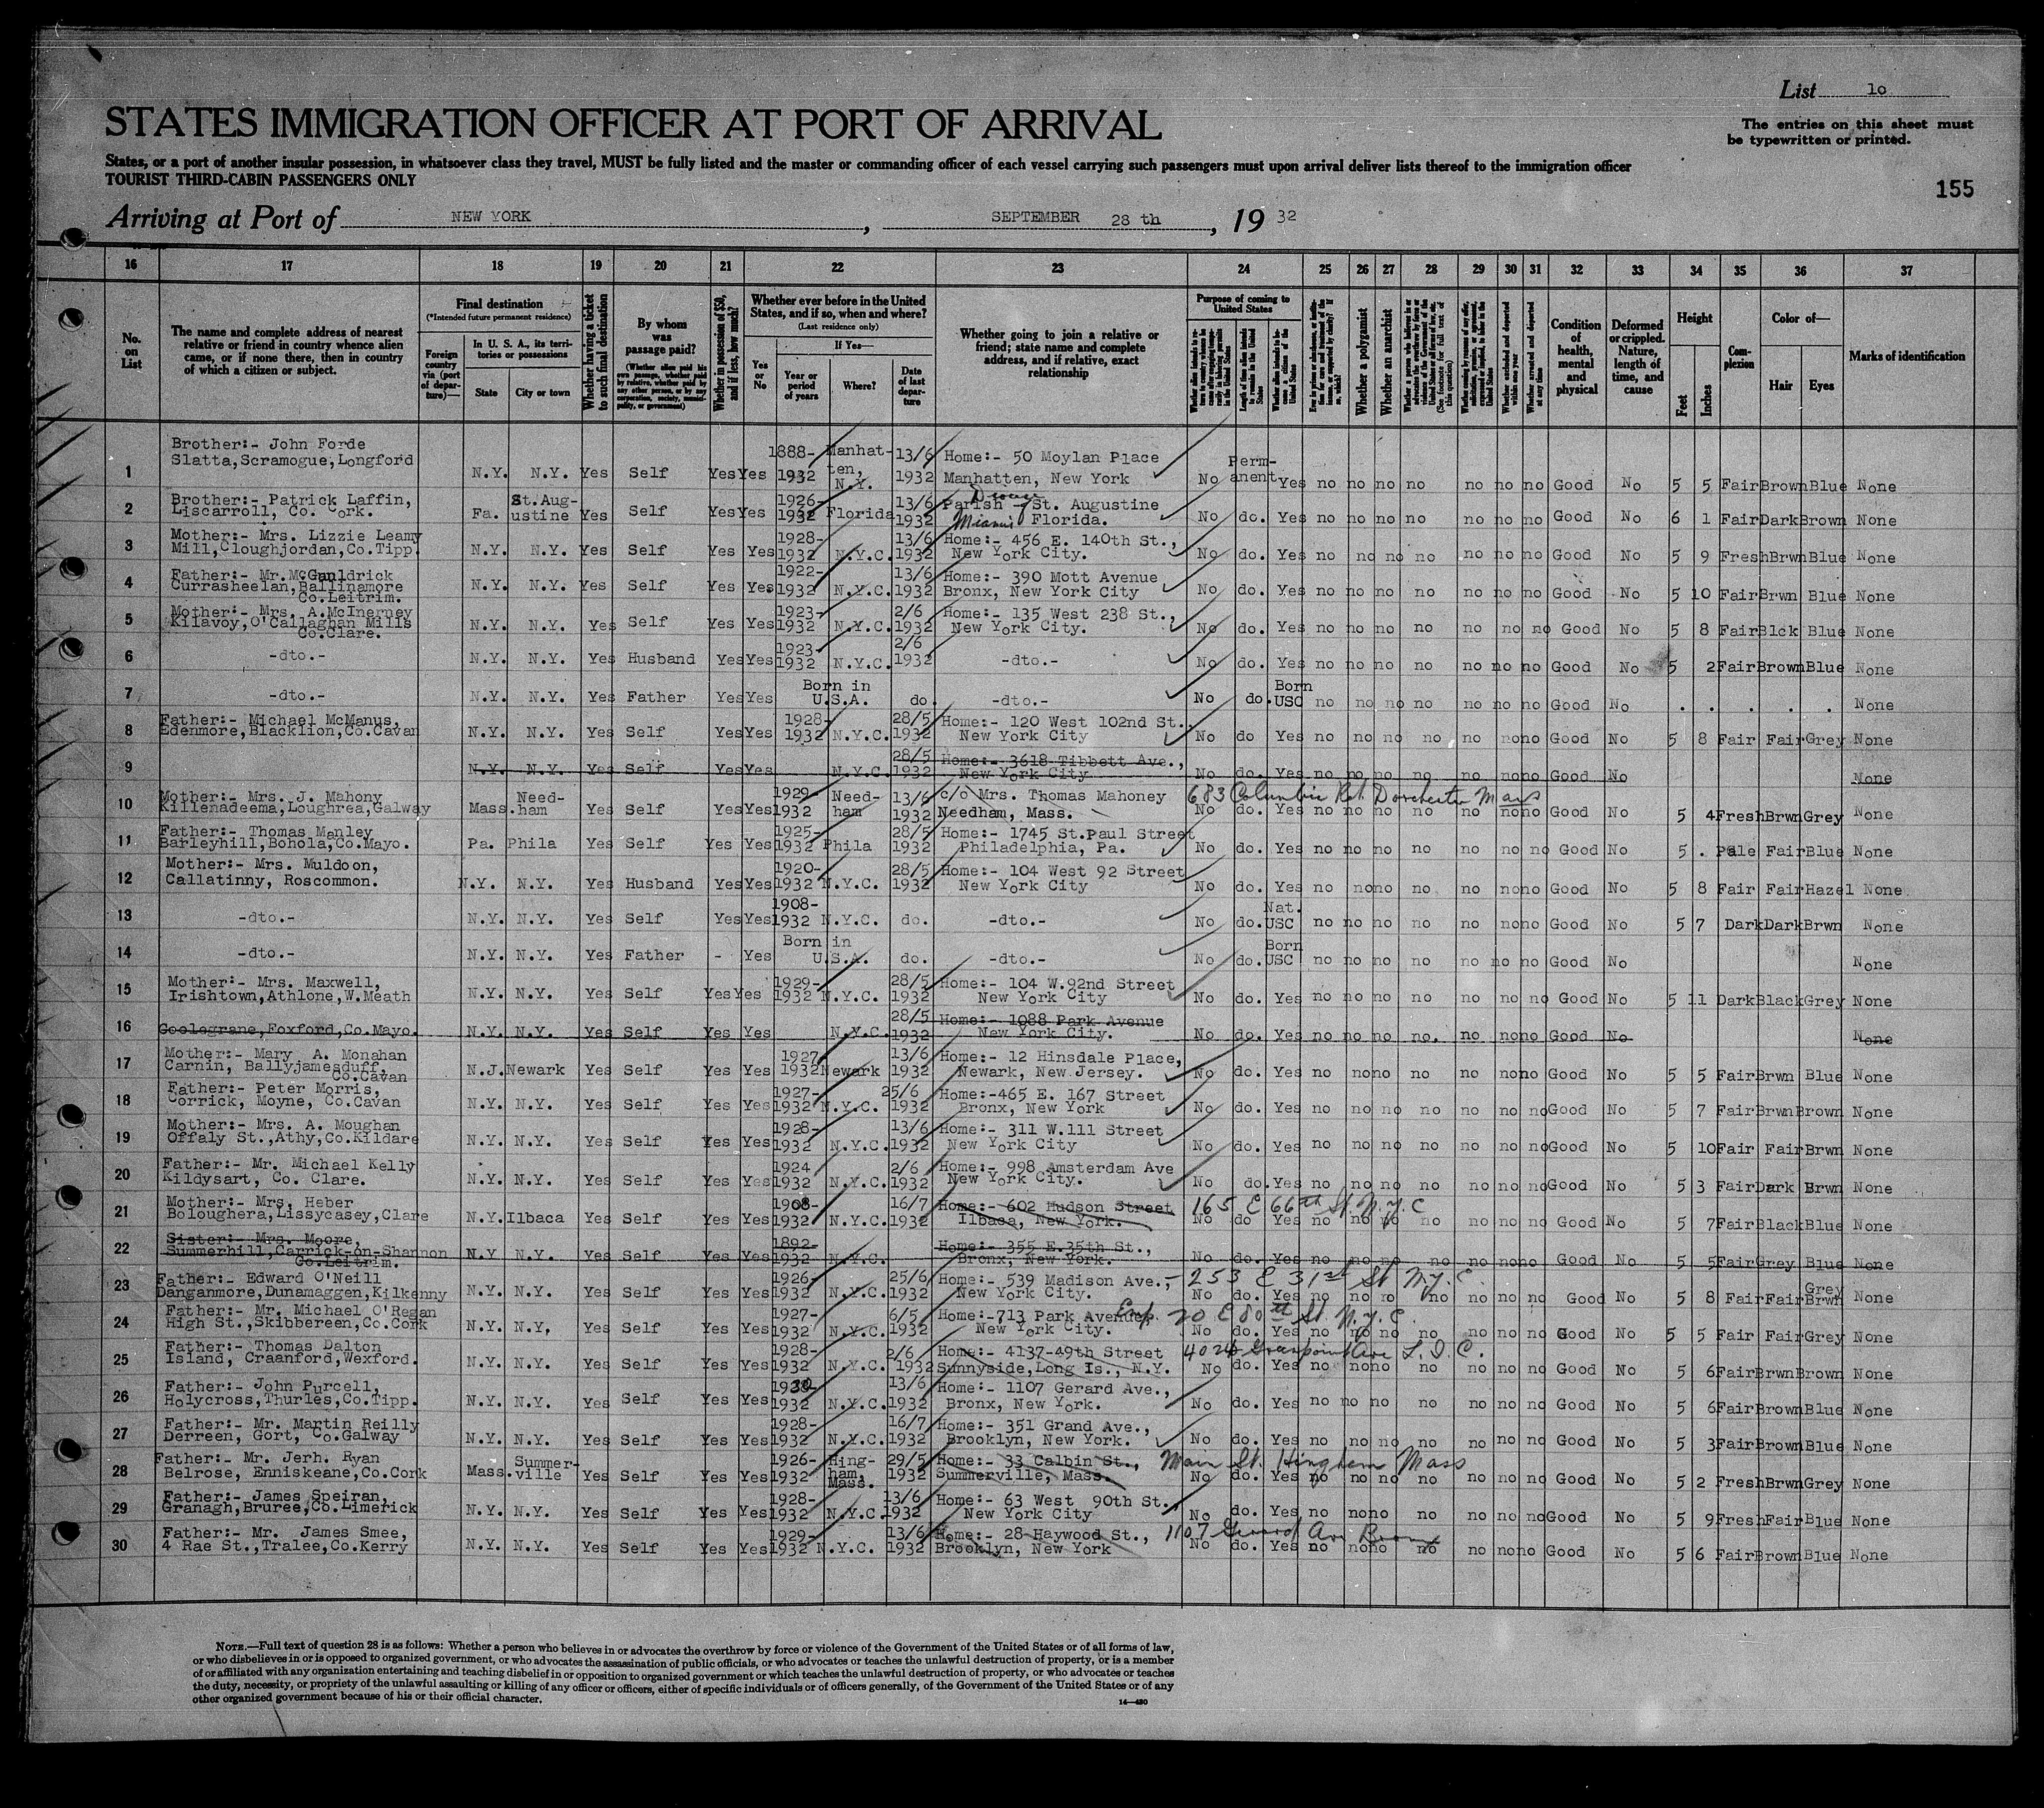 List 10
STATES IMMIGRATION OFFICER AT PORT OF ARRIVAL
The entries on this sheet must
be typewritten or printed.
States, or a port of another insular possession, in whatsoever class they travel, MUST be fully listed and the master or commanding officer of each vessel carrying such passengers must upon arrival deliver lists thereof to the immigration officer
TOURIST THIRD-CABIN PASSENGERS ONLY
155
Arriving at Port of NEW YORK, SEPTEMBER 28 th, 19 32
16 17 18 19 20 21 22 23 24 25 26 27 28 29 30 31 32 33 34 35 36 37
No. on List
The name and complete address of nearest relative or friend in country whence alien came, or if none there, then in country of which a citizen or subject.
Final destination
(*Intended future permanent residence)
Foreign country via (port of departure)—
In U. S. A., its territories or possessions
State City or town
Whether having a ticket to such final destination
By whom was passage paid?
(Whether alien paid his own passage, whether paid by relative, whether paid by any other person, or by any corporation, society, municipality, or government)
Whether in possession of $50, and if less, how much?
Whether ever before in the United States, and if so, when and where?
(Last residence only)
Yes or No
If Yes—
Year or period of years Where? Date of last departure
Whether going to join a relative or friend; state name and complete address, and if relative, exact relationship
Purpose of coming to United States
Whether a polygamist
Whether an anarchist
Condition of health, mental and physical
Deformed or crippled. Nature, length of time, and cause
Height
Feet Inches
Complexion
Color of—
Hair Eyes
Marks of identification
1 Brother:- John Forde Slatta,Scramogue,Longford N.Y. N.Y. Yes Self Yes Yes 1888-1932 Manhatten, N.Y. 13/6 1932 Home:- 50 Moylan Place Manhatten, New York No Permanent Yes no no no no no no no Good No 5 5 Fair Brown Blue None
2 Brother:- Patrick Laffin, Liscarroll, Co. Cork. Fa. St.Augustine Yes Self Yes Yes 1926-1932 Florida 13/6 1932 Parish of St. Augustine Miami Florida. No do. Yes no no no no no no no Good No 6 1 Fair Dark Brown None
3 Mother:- Mrs. Lizzie Leamy Mill,Cloughjordan,Co.Tipp. N.Y. N.Y. Yes Self Yes Yes 1928-1932 N.Y.C. 13/6 1932 Home:- 456 E. 140th St., New York City. No do. Yes no no no no no no no Good No 5 9 Fresh Brwn Blue None
4 Father:- Mr. Currasheelan,Ballinamore Co.Leitrim. N.Y. N.Y. Yes Self Yes Yes 1922-1932 N.Y.C. 13/6 1932 Home:- 390 Mott Avenue Bronx, New York City No do. Yes no no no no no no no Good No 5 10 Fair Brwn Blue None
5 Mother:- Mrs. A.McInerney Kilavoy,O'Callaghan Mills Co.Clare. N.Y. N.Y. Yes Self Yes Yes 1923-1932 N.Y.C. 2/6 1932 Home:- 135 West 238 St., New York City. No do. Yes no no no no no no no Good No 5 8 Fair Blck Blue None
6 -dto.- N.Y. N.Y. Yes Husband Yes Yes 1923-1932 N.Y.C. 2/6 1932 -dto.- No do. Yes no no no no no no no Good No 5 2 Fair Brown Blue None
7 -dto.- N.Y. N.Y. Yes Father Yes Yes Born in U.S.A. do. -dto.- No do. Born USC no no no no no no no Good No . . . . . None
8 Father:- Michael McManus, Edenmore,Blacklion,Co.Cavan N.Y. N.Y. Yes Self Yes Yes 1928-1932 N.Y.C. 28/5 1932 Home:- 120 West 102nd St., New York City No do Yes no no no no no no no Good No 5 8 Fair Fair Grey None
9 N.Y. N.Y. Yes Self Yes Yes N.Y.C. 28/5 1932 Home:- 3618 Tibbett Ave., New York City No do. Yes no no no no no no no Good No None
10 Mother:- Mrs. J. Mahony Killenadeema,Loughrea,Galway Mass. Needham Yes Self Yes Yes 1929-1932 Needham 13/6 1932 c/o Mrs. Thomas Mahoney Needham, Mass. 683 Columbia Rd. Dorchester Mass No do. Yes no no no no no no no Good No 5 4 Fresh Brwn Grey None
11 Father:- Thomas Manley Barleyhill,Bohola,Co.Mayo. Pa. Phila Yes Self Yes Yes 1925-1932 Phila 28/5 1932 Home:- 1745 St.Paul Street Philadelphia, Pa. No do. Yes no no no no no no no Good No 5 . Pale Fair Blue None
12 Mother:- Mrs. Muldoon, Callatinny, Roscommon. N.Y. N.Y. Yes Husband Yes Yes 1920-1932 N.Y.C. 28/5 1932 Home:- 104 West 92 Street New York City No do. Yes no no no no no no no Good No 5 8 Fair Fair Hazel None
13 -dto.- N.Y. N.Y. Yes Self Yes Yes 1908-1932 N.Y.C. do. -dto.- No do. Nat. USC no no no no no no no Good No 5 7 Dark Dark Brwn None
14 -dto.- N.Y. N.Y. Yes Father - Yes Born in U.S.A. do. -dto.- No do. Born USC no no no no no no no Good No None
15 Mother:- Mrs. Maxwell, Irishtown,Athlone,W.Meath N.Y. N.Y. Yes Self Yes Yes 1929-1932 N.Y.C. 28/5 1932 Home:- 104 W.92nd Street New York City No do. Yes no no no no no no no Good No 5 11 Dark Black Grey None
16 Goolegrane,Foxford,Co.Mayo. N.Y. N.Y. Yes Self Yes Yes N.Y.C. 28/5 1932 Home:- 1088 Park Avenue New York City. No do. Yes no no no no. no no no Good No None
17 Mother:- Mary A. Monahan Carnin, Ballyjamesduff, Co.Cavan N.J. Newark Yes Self Yes Yes 1927 1932 Newark 13/6 1932 Home:- 12 Hinsdale Place, Newark, New Jersey. No do. Yes no no no no no no no Good No 5 5 Fair Brwn Blue None
18 Father:- Peter Morris, Corrick, Moyne, Co.Cavan N.Y. N.Y. Yes Self Yes Yes 1927-1932 N.Y.C. 25/6 1932 Home:-465 E. 167 Street Bronx, New York No do. Yes no no no no no no no Good No 5 7 Fair Brwn Brown None
19 Mother:- Mrs. A. Moughan Offaly St.,Athy,Co.Kildare N.Y. N.Y. Yes Self Yes Yes 1928-1932 N.Y.C. 13/6 1932 Home:- 311 W.111 Street New York City No do. Yes no no no no no no no Good No 5 10 Fair Fair Brwn None
20 Father:- Mr. Michael Kelly Kildysart, Co. Clare. N.Y. N.Y. Yes Self Yes Yes 1924 1932 N.Y.C. 2/6 1932 Home:- 998 Amsterdam Ave New York City. No do. Yes no no no no no no no Good No 5 3 Fair Dark Brwn None
21 Mother:- Mrs. Heber Boloughera,Lissycasey,Clare N.Y. Ilbaca Yes Self Yes Yes 1908-1932 N.Y.C. 16/7 1932 Home:- 602 Hudson Street Ilbaca, New York. 165 E 66th St. N.Y.C No do Yes no no no no no no no Good No 5 7 Fair Black Blue None
22 Sister:- Mrs. Moore, Summerhill,Carrick-on-Shannon Co.Leitrim. N.Y N.Y. Yes Self Yes Yes 1892-1932 N.Y.C. Home:- 355 E.35th St., Bronx, New York. No do. Yes no no no no no no no Good No 5 5 Fair Grey Blue None
23 Father:- Edward O'Neill Danganmore,Dunamaggen,Kilkenny N.Y. N.Y. Yes Self Yes Yes 1926-1932 N.Y.C. 25/6 1932 Home:- 539 Madison Ave., New York City. 253 E 31st St N.Y.C. No do. Yes no no no no no no no Good No 5 8 Fair Fair Grey Brwn None
24 Father:- Mr. Michael O'Regan High St.,Skibbereen,Co.Cork N.Y. N.Y, Yes Self Yes Yes 1927-1932 N.Y.C. 6/5 1932 Home:-713 Park Avenue, New York City. 20 E 80th St. N.Y.C. No do. Yes no no no no no no no Good No 5 5 Fair Fair Grey None
25 Father:- Thomas Dalton Island, Craanford,Wexford. N.Y. N.Y. Yes Self Yes Yes 1928-1932 N.Y.C. 2/6 1932 Home:- 4137-49th Street Sunnyside,Long Is., N.Y. Ave L.I.C. No do. Yes no no no no no no no Good No 5 6 Fair Brwn Brown None
26 Father:- John Purcell, Holycross,Thurles,Co.Tipp. N.Y. N.Y. Yes Self Yes Yes 1930-1932 N.Y.C. 13/6 1932 Home:- 1107 Gerard Ave., Bronx, New York. No do. Yes no no no no no no no Good No 5 6 Fair Brown Blue None
27 Father:- Mr. Martin Reilly Derreen, Gort, Co.Galway N.Y. N.Y. Yes Self Yes Yes 1928-1932 N.Y.C. 16/7 1932 Home:- 351 Grand Ave., Brooklyn, New York. No do. Yes no no no no no no no Good No 5 3 Fair Brown Blue None
28 Father:- Mr. Jerh. Ryan Belrose, Enniskeane,Co.Cork Mass. Summerville Yes Self Yes Yes 1926-1932 Hingham, Mass. 29/5 1932 Home:- 33 Calbin St., Summerville, Mass. Main St. Hingham Mass No do. Yes no no no no no no no Good No 5 2 Fresh Brwn Grey None
29 Father:- James Speiran, Granagh,Bruree,Co.Limerick N.Y. N.Y. Yes Self Yes Yes 1928-1932 N.Y.C. 13/6 1932 Home:- 63 West 90th St., New York City No do. Yes no no no no no no no Good No 5 9 Fresh Fair Blue None
30 Father:- Mr. James Smee, 4 Rae St.,Tralee,Co.Kerry N.Y. N.Y. Yes Self Yes Yes 1929-1932 N.Y.C. 13/6 1932 Home:- 28 Haywood St., Brooklyn, New York 1107 Gerard Av Bronx No do. Yes no no no no no no no Good No 5 6 Fair Brown Blue None
NOTE.—Full text of question 28 is as follows: Whether a person who believes in or advocates the overthrow by force or violence of the Government of the United States or of all forms of law,
or who disbelieves in or is opposed to organized government, or who advocates the assassination of public officials, or who advocates or teaches the unlawful destruction of property, or is a member
of or affiliated with any organization entertaining and teaching disbelief in or opposition to organized government or which teaches the unlawful destruction of property, or who advocates or teaches
the duty, necessity, or propriety of the unlawful assaulting or killing of any officer or officers, either of specific individuals or of officers generally, of the Government of the United States or of any
other organized government because of his or their official character.
14—480